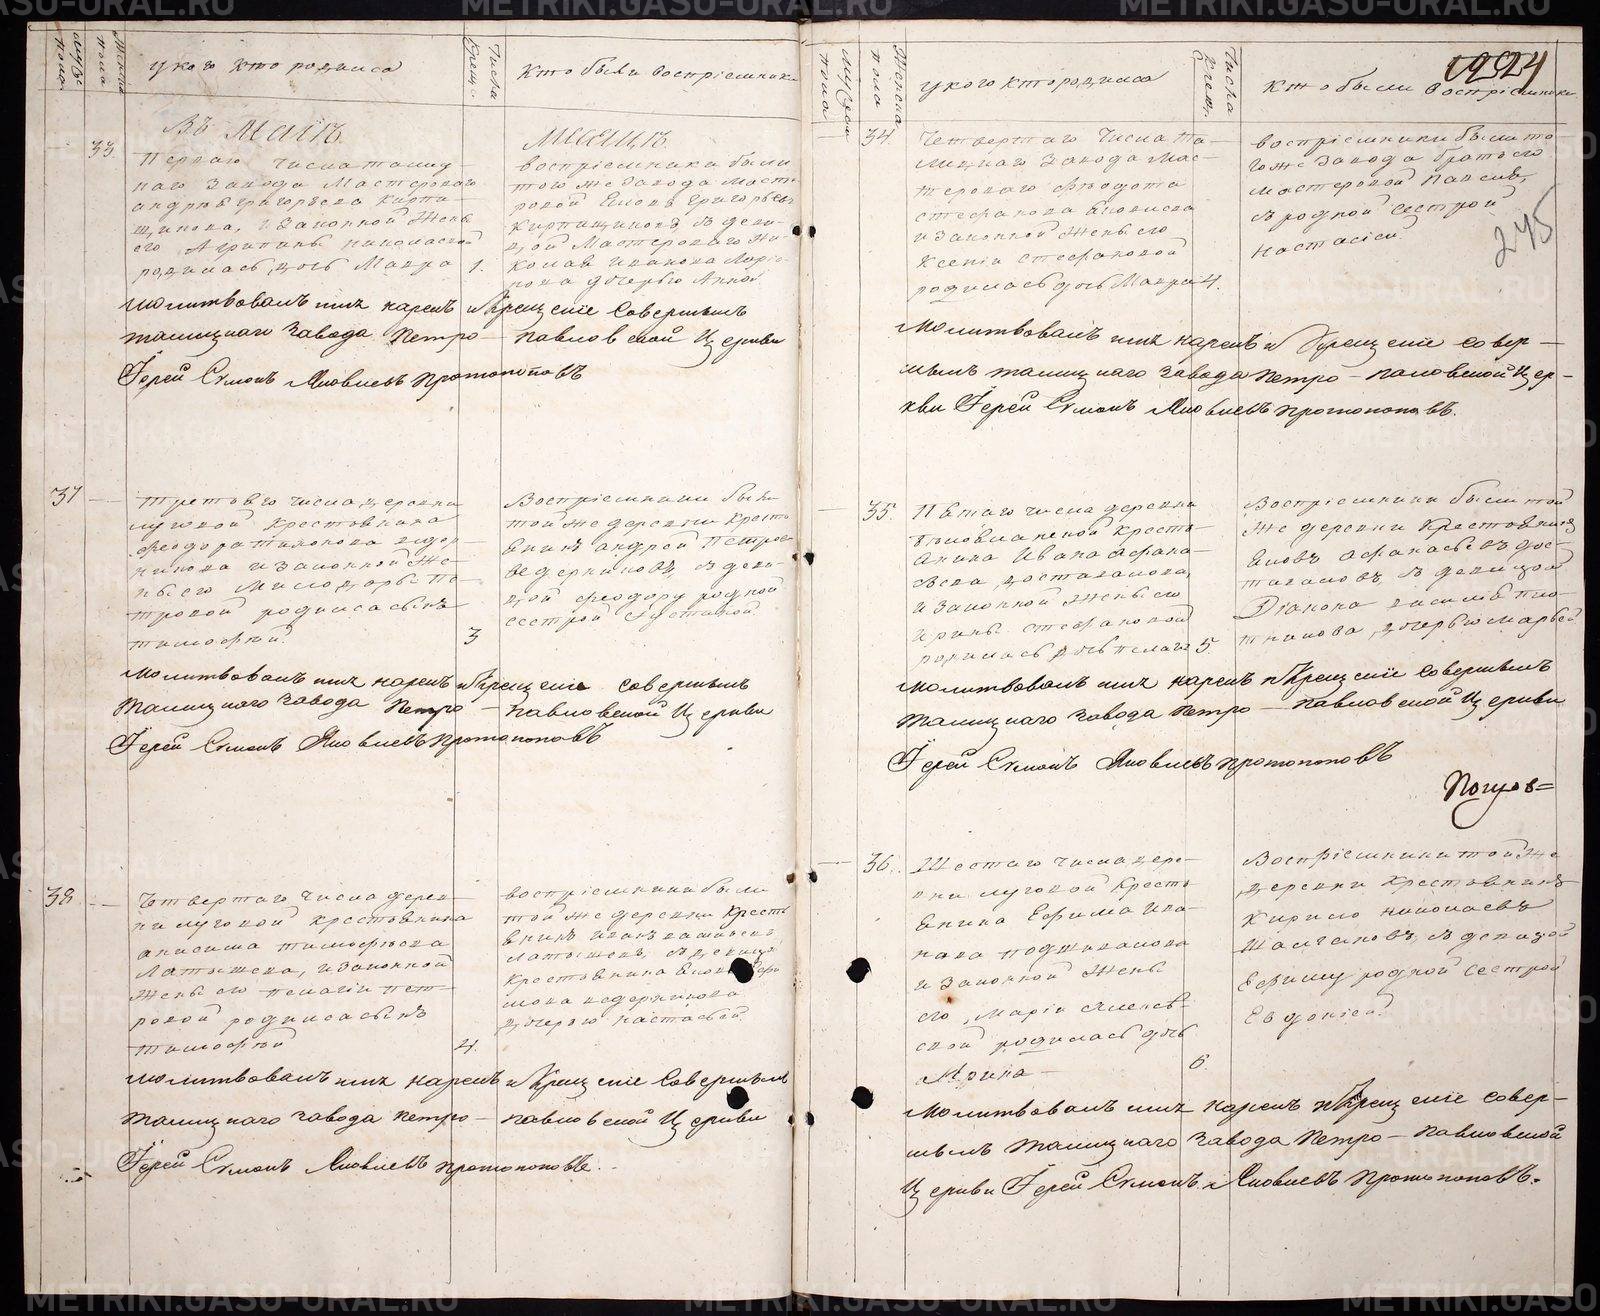 мужска пола
Женска пола
у кого кто родился
Числа Крещ.
Кто были восприемники
Въ Маiѣ
Месяцѣ
33.
Перваго числа талиц-
каго Завода Мастероваго
андрея григорьева Кирпи-
щикова, и Законной Жены
его Агрипины николаевой
родилась дочь Мавра
1.
воспрiемники были
того же Завода Масте-
ровой Яковъ григорьевъ
Кирпищиковъ, з деви-
цой Мастероваго Ни-
колая Иванова Ларiо-
нова дочерью Анной
Молитвовалъ имя нарекъ и Крещенiе Совершилъ
талицкаго завода Петро-павловской Церкви
Iерей Симонъ Яковлевъ Протопоповъ
37
Третьяго числа деревни
луговой Крестьянина
феодора
и Законной Же-
ны его Пе-
тровой родился сынъ
тимофѣй.
3
Воспрiемники были
той же деревни Кресть-
янинъ андрей Петровъ
ведерниковъ, з деви-
цой феодору родной
сестрой Устиньей
Молитвовалъ имя нарекъ и Крещенiе совершилъ
Талицкаго завода Петро-павловской Церкви
Iерей Симонъ Яковлевъ Протопоповъ
38
Четвертаго Числа дерев-
ни луговой Крестьянина
анисима тимофѣева
Латышева, и Законной
Жены его пелагiи пет-
ровой родился сынъ
тимофѣй
4.
воспрiемники были
той же деревни Кресть-
янинъ иванъ
Латышевъ, з девицей
Крестьянина Якова Ефи-
мова ведерникова
дочерью Настасьей
Молитвовалъ имя нарекъ и Крещенiе Совершилъ
талицкаго завода Петро-павловской Церкви
Iерей Симонъ Яковлевъ Протопоповъ.
мужска пола
Женска пола
у кого кто родился
Числа Крещ.
Кто были Воспрiемники
245
34.
Четвертаго Числа та-
лицкаго Завода Мас-
тероваго Феодота
стефанова Яковлева
и Законной Жены его
Ксенiи стефановой
родилась дочь Мавра
4.
воспрiемники были то-
го же Завода братъ его
мастеровой
з родной сестрой
Настасiей.
Молитвовалъ имя нарекъ и Крещенiе совер-
шилъ талицкаго завода Петро-павловской Цер-
кви Iерей Симонъ Яковлевъ Протопоповъ.
35.
Пятаго числа деревни
Кресть-
янина Ивана Афана-
сьева достовалова,
и Законной Жены его
Ирины стефановой
родилась дочь Пелагея
5.
Воспрiемники были той
же деревни Крестьянинъ
Яковъ Афанасьевъ дос-
товаловъ, з девицой
Дiакона василiя пло-
тникова, дочерью марьей
Молитвовалъ имя нарекъ и Крещенiе Совершилъ
Талицкаго завода Петро-павловской Церкви
Iерей Симонъ Яковлевъ Протопоповъ
36.
Шестаго числа дере-
вни луговой Кресть-
янина Ефима Ива-
нова
и Законной Жены
его, Марiи Алексѣ-
евой родилась дочь
Ирина
6.
Воспрiемники той же
деревни Крестьянинъ
Кирило николаевъ
з девицой
Ефиму родной сестрой
Евдокiей.
Молитвовалъ имя нарекъ и Крещенiе совер-
шилъ талицкаго завода Петро-павловской
Церкви Iерей Симонъ Яковлевъ Протопоповъ.
METRIKI.GASO-URAL.RU